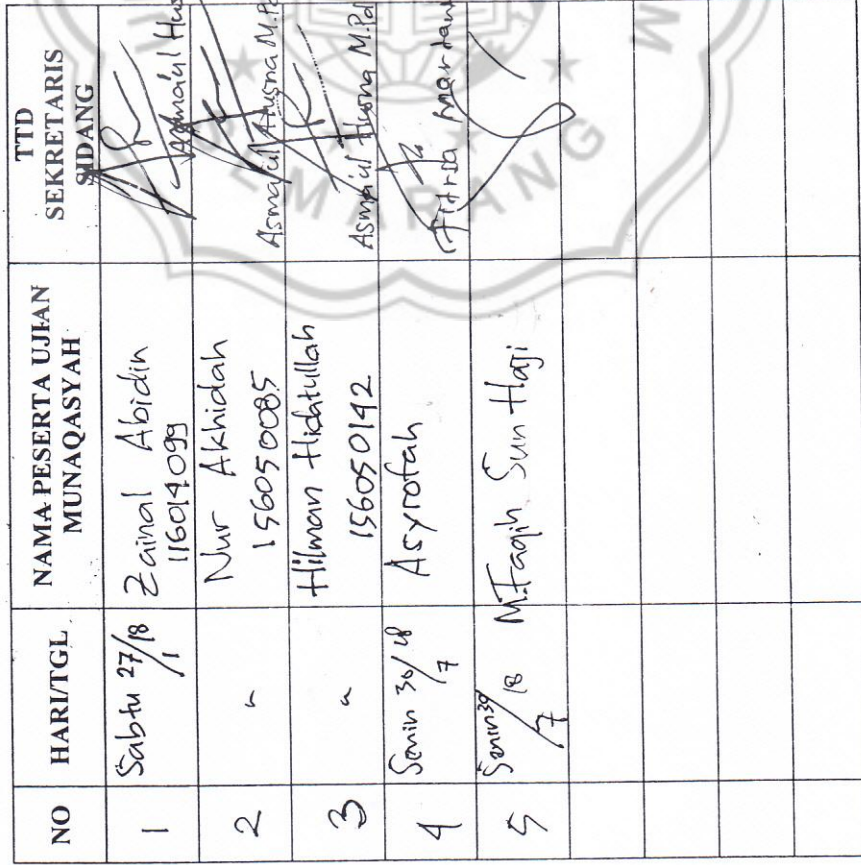 NO
HARI/TGL
NAMA PESERTA UJIAN
MUNAQASYAH
TTD
SEKRETARIS
SIDANG
1
Sabtu 27/18
1
Zainal Abidin
116014099
Asmaiul Hus
2
"
Nur Akhidah
156050085
Asmaiul Husna M.Pd
3
"
Hilman Hidatullah
156050142
Asmaiul Husna M.Pd
4
Senin 30/18
7
Asyrofah
Fitria
5
Senin 30
18
7
M. Faqih Sun Haji
SEMARANG